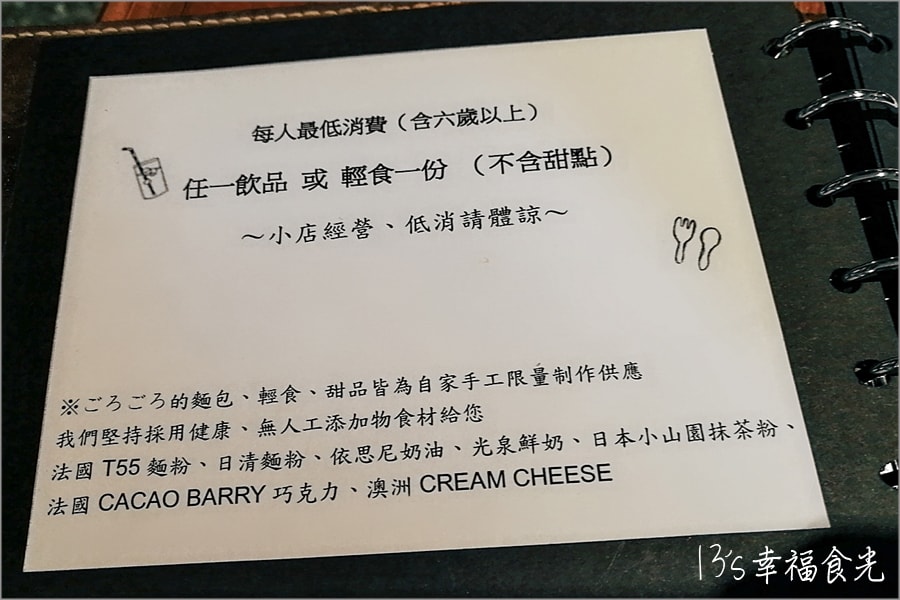 每人最低消費（含六歲以上）
任一飲品 或 輕食一份 （不含甜點）
～小店經營、低消請體諒～
※ごろごろ的麵包、輕食、甜品皆為自家手工限量制作供應
我們堅持採用健康、無人工添加物食材給您
法國 T55 麵粉、日清麵粉、依思尼奶油、光泉鮮奶、日本小山園抹茶粉、
法國 CACAO BARRY 巧克力、澳洲 CREAM CHEESE
13's幸福食光